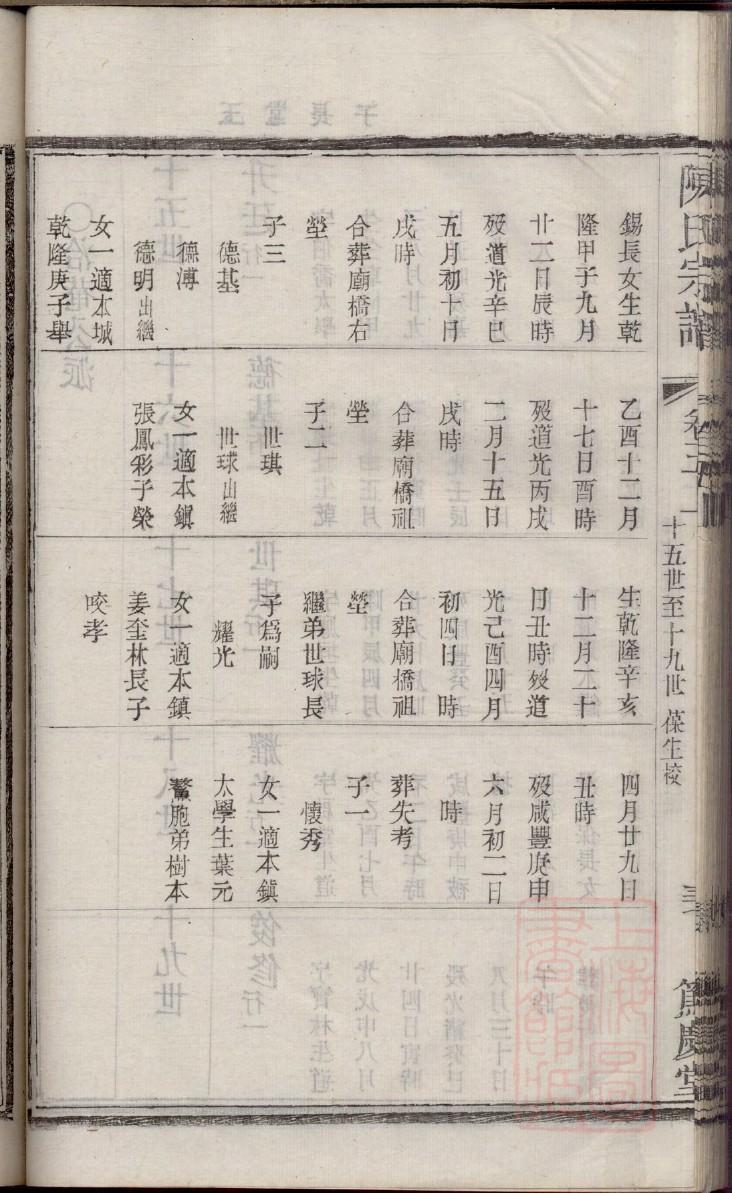 陳氏宗譜
卷五
十五世至十九世 葆生校
篤慶堂
錫長女生乾
隆甲子九月
廿六日辰時
歿道光辛巳
五月初十日
戌時
合葬廟橋右
塋
子三
德基
德溥
德明出繼
女一適本城
乾隆庚子舉
乙酉十二月
十七日酉時
歿道光丙戌
二月十五日
戌時
合葬廟橋祖
塋
子二
世琪
世球出繼
女一適本鎮
張鳳彩子榮
生乾隆辛亥
十二月二十
日丑時歿道
光己酉四月
初四日 時
合葬廟橋祖
塋
繼弟世球長
子爲嗣
耀光
女一適本鎮
姜奎林長子
咬孝
四月廿九日
丑時
歿咸豐庚申
六月初二日
時
葬失考
子一
懷秀
女一適本鎮
太學生葉元
鰲胞弟樹本